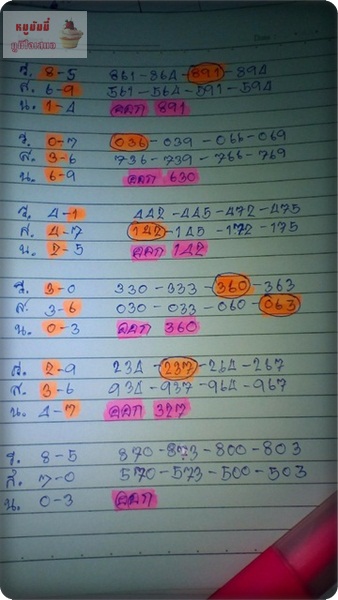 หมูยันยี่
ภูมิใจเสนอ
Date
ร. 8-5 861-864-891-894
ส. 6-9 561-564-591-594
น. 1-4 ออก 891
ร. 0-7 036-039-066-069
ส. 3-6 736-739-766-769
น. 6-9 ออก 630
ร. 4-1 442-445-472-475
ส. 4-7 142-145-172-175
น. 2-5 ออก 142
ร. 3-0 330-333-360-363
ส. 3-6 030-033-060-063
น. 0-3 ออก 360
ร. 2-9 234-237-264-267
ส. 3-6 934-937-964-967
น. 4-7 ออก 327
ร. 8-5 870-873-800-803
ส. 7-0 570-573-500-503
น. 0-3 ออก